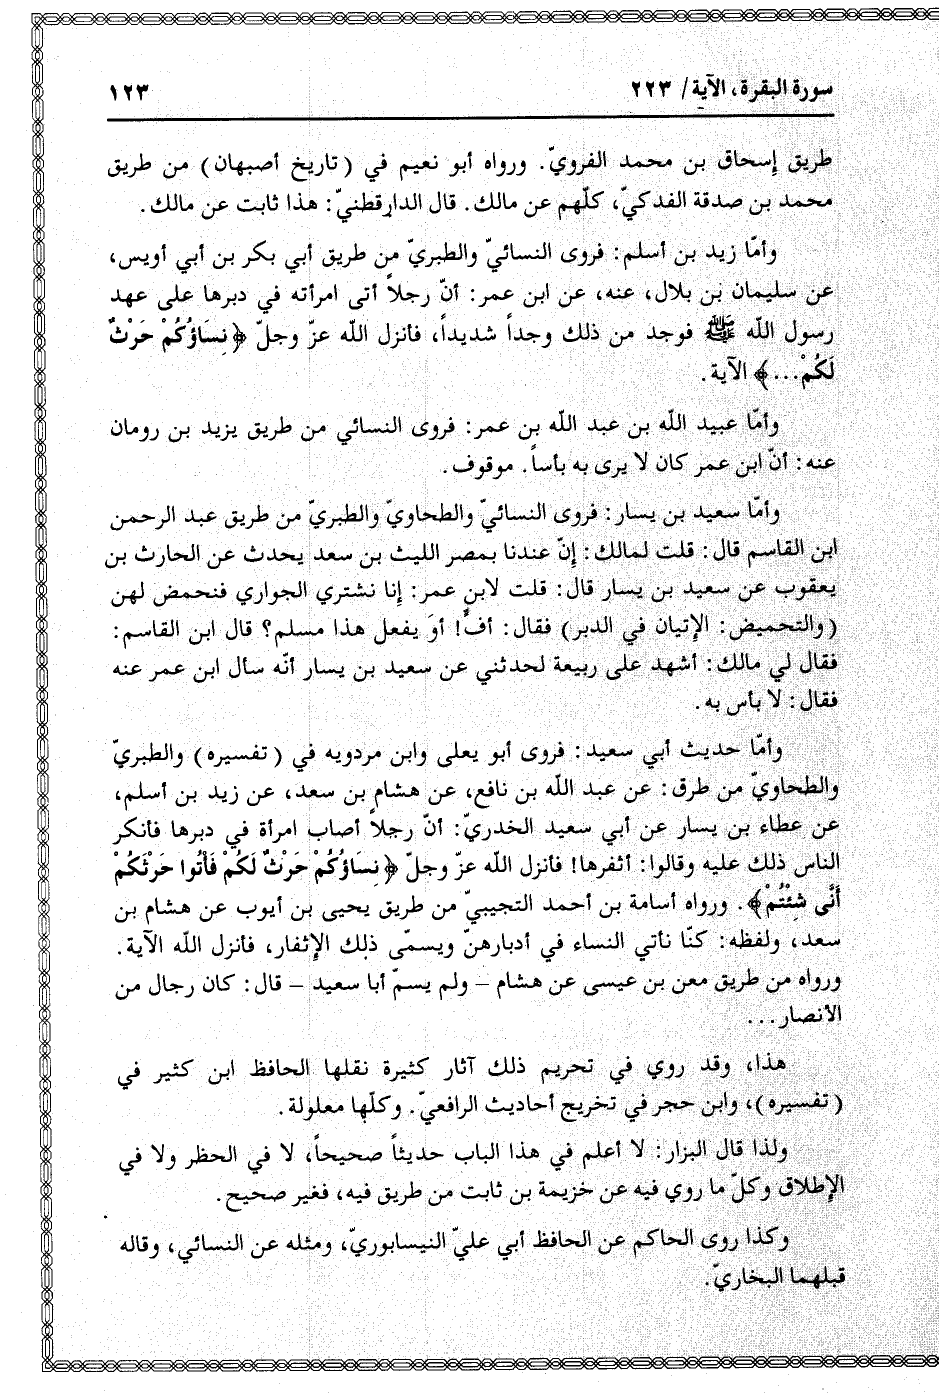 سورة البقرة، الآية/ ٢٢٣
١٢٣
طريق إسحاق بن محمد الفرويّ. ورواه أبو نعيم في (تاريخ أصبهان) من طريق
محمد بن صدقة الفدكيّ، كلّهم عن مالك. قال الدارقطنيّ: هذا ثابت عن مالك.
وأمّا زيد بن أسلم: فروى النسائيّ والطبريّ من طريق أبي بكر بن أبي أويس،
عن سليمان بن بلال، عنه، عن ابن عمر: أنّ رجلاً أتى امرأته في دبرها على عهد
رسول الله ﷺ فوجد من ذلك وجداً شديداً، فأنزل الله عزّ وجلّ ﴿نِسَاؤُكُمْ حَرْثٌ
لَكُمْ...﴾ الآية.
وأمّا عبيد الله بن عبد الله بن عمر: فروى النسائي من طريق يزيد بن رومان
عنه: أنّ ابن عمر كان لا يرى به بأساً. موقوف.
وأمّا سعيد بن يسار: فروى النسائيّ والطحاويّ والطبريّ من طريق عبد الرحمن
ابن القاسم قال: قلت لمالك: إنّ عندنا بمصر الليث بن سعد يحدث عن الحارث بن
يعقوب عن سعيد بن يسار قال: قلت لابن عمر: إنا نشتري الجواري فنحمض لهن
(والتحميض: الإتيان في الدبر) فقال: أفٍّ! أوَ يفعل هذا مسلم؟ قال ابن القاسم:
فقال لي مالك: أشهد على ربيعة لحدثني عن سعيد بن يسار أنّه سأل ابن عمر عنه
فقال: لا بأس به.
وأمّا حديث أبي سعيد: فروى أبو يعلى وابن مردويه في (تفسيره) والطبريّ
والطحاويّ من طرق: عن عبد الله بن نافع، عن هشام بن سعد، عن زيد بن أسلم،
عن عطاء بن يسار عن أبي سعيد الخدريّ: أنّ رجلاً أصاب امرأة في دبرها فأنكر
الناس ذلك عليه وقالوا: أثفرها! فأنزل الله عزّ وجلّ ﴿نِسَاؤُكُمْ حَرْثٌ لَكُمْ فَأْتُوا حَرْثَكُمْ
أَنَّى شِئْتُمْ﴾. ورواه أسامة بن أحمد التجيبيّ من طريق يحيى بن أيوب عن هشام بن
سعد، ولفظه: كنّا نأتي النساء في أدبارهنّ ويسمّى ذلك الإثفار، فأنزل الله الآية.
ورواه من طريق معن بن عيسى عن هشام – ولم يسمّ أبا سعيد – قال: كان رجال من
الأنصار...
هذا، وقد روي في تحريم ذلك آثار كثيرة نقلها الحافظ ابن كثير في
(تفسيره)، وابن حجر في تخريج أحاديث الرافعيّ. وكلّها معلولة.
ولذا قال البزار: لا أعلم في هذا الباب حديثاً صحيحاً، لا في الحظر ولا في
الإطلاق وكلّ ما روي فيه عن خزيمة بن ثابت من طريق فيه، فغير صحيح.
وكذا روى الحاكم عن الحافظ أبي عليّ النيسابوريّ، ومثله عن النسائي، وقاله
قبلهما البخاريّ.